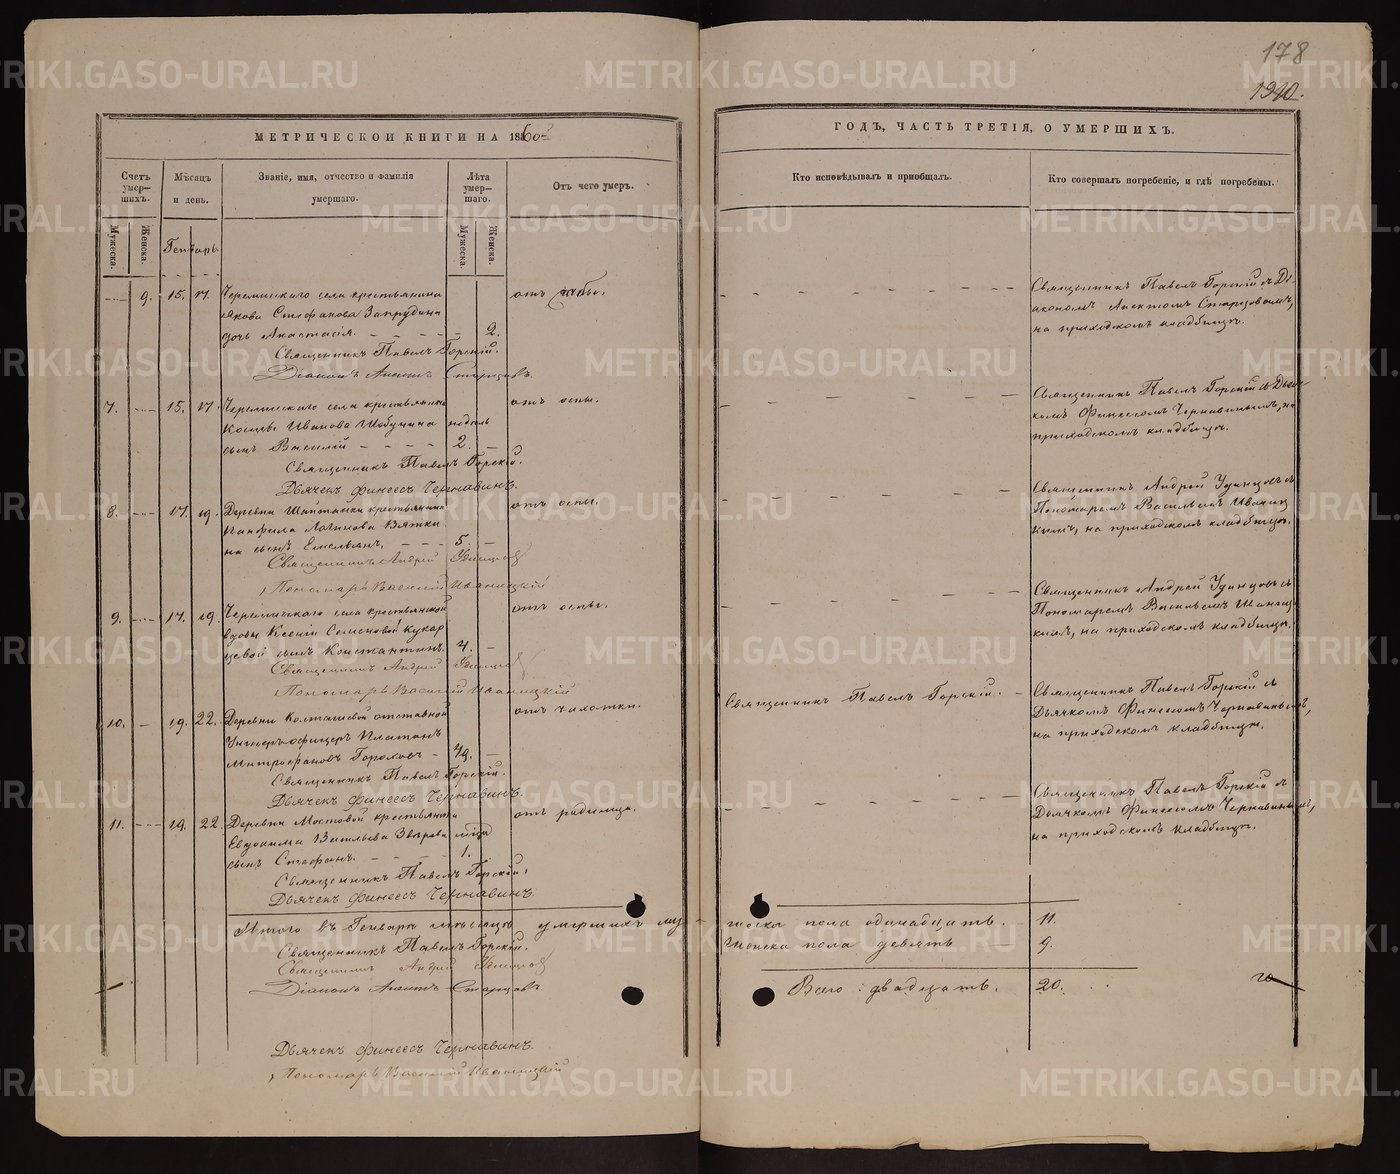 178
1910.
МЕТРИЧЕСКОЙ КНИГИ НА 1860й
ГОДЪ, ЧАСТЬ ТРЕТІЯ, О УМЕРШИХЪ.
Счетъ умер-шихъ.
Мужеска.
Женска.
Мѣсяцъ и день.
Званіе, имя, отчество и фамилія умершаго.
Лѣта умер-шаго.
Мужеска.
Женска.
Отъ чего умеръ.
Кто исповѣдывалъ и пріобщалъ.
Кто совершалъ погребеніе, и гдѣ погребены.
Генварь
9. 15. 17. Черемисскаго села крестьянина
Якова Стефанова Запрудина
дочь Анастасія. 2.
отъ
Священникъ Павелъ Горскій съ Ді-
акономъ Старцовымъ,
на приходскомъ кладбищѣ.
Священникъ Павелъ Горскій.
Діаконъ Старцовъ.
7. 15. 17. Черемисскаго села крестьянина
Иванова Шабунина недѣль
сынъ Василій 2.
отъ оспы.
Священникъ Павелъ Горскій съ Дьяч-
комъ Финеесомъ Чернавинымъ, на
приходскомъ кладбищѣ.
Священникъ Павелъ Горскій.
Дьячекъ Финеесъ Чернавинъ.
8. 17. 19. Деревни крестьянина
Панфила Логинова Вятки-
на сынъ Емельянъ. 5.
отъ оспы.
Священникъ Андрей Удинцовъ съ
Пономаремъ Васильемъ Иваниц-
кимъ, на приходскомъ кладбищѣ.
Священникъ Андрей Удинцов
Пономарь Василій Иваницкій
9. 17. 19. Черемисскаго села крестьянской
вдовы Ксеніи Семеновой Кукар-
цевой сынъ Константинъ. 4.
отъ оспы.
Священникъ Андрей Удинцовъ съ
Пономаремъ Васильемъ Иваниц-
кимъ, на приходскомъ кладбищѣ.
Священникъ Андрей Удинцов
Пономарь Василій Иваницкій
10. 19. 22. Деревни Колташевой отставной
Унтеръ-офицеръ Платонъ
Митрофановъ Гороховъ 49.
отъ чахотки.
Священникъ Павелъ Горскій.
Священникъ Павелъ Горскій съ
Дьячкомъ Финеесомъ Чернавинымъ,
на приходскомъ кладбищѣ.
Священникъ Павелъ Горскій.
Дьячекъ Финеесъ Чернавинъ.
11. 19. 22. Деревни Мостовой крестьянина
Евдокима Васильева Звѣрева мѣсяца
сынъ Стефанъ. 1.
отъ родимца.
Священникъ Павелъ Горскій съ
Дьячкомъ Финеесомъ Чернавинымъ,
на приходскомъ кладбищѣ.
Священникъ Павелъ Горскій.
Дьячекъ Финеесъ Чернавинъ.
Итого въ Генварѣ мѣсяцѣ умершихъ му-
жеска пола одинадцать. 11.
женска пола девять 9.
Всего: двадцать. 20.
20
Священникъ Павелъ Горскій.
Священникъ Андрей Удинцов
Діаконъ Старцовъ.
Дьячекъ Финеесъ Чернавинъ.
Пономарь Василій Иваницкій
METRIKI.GASO-URAL.RU